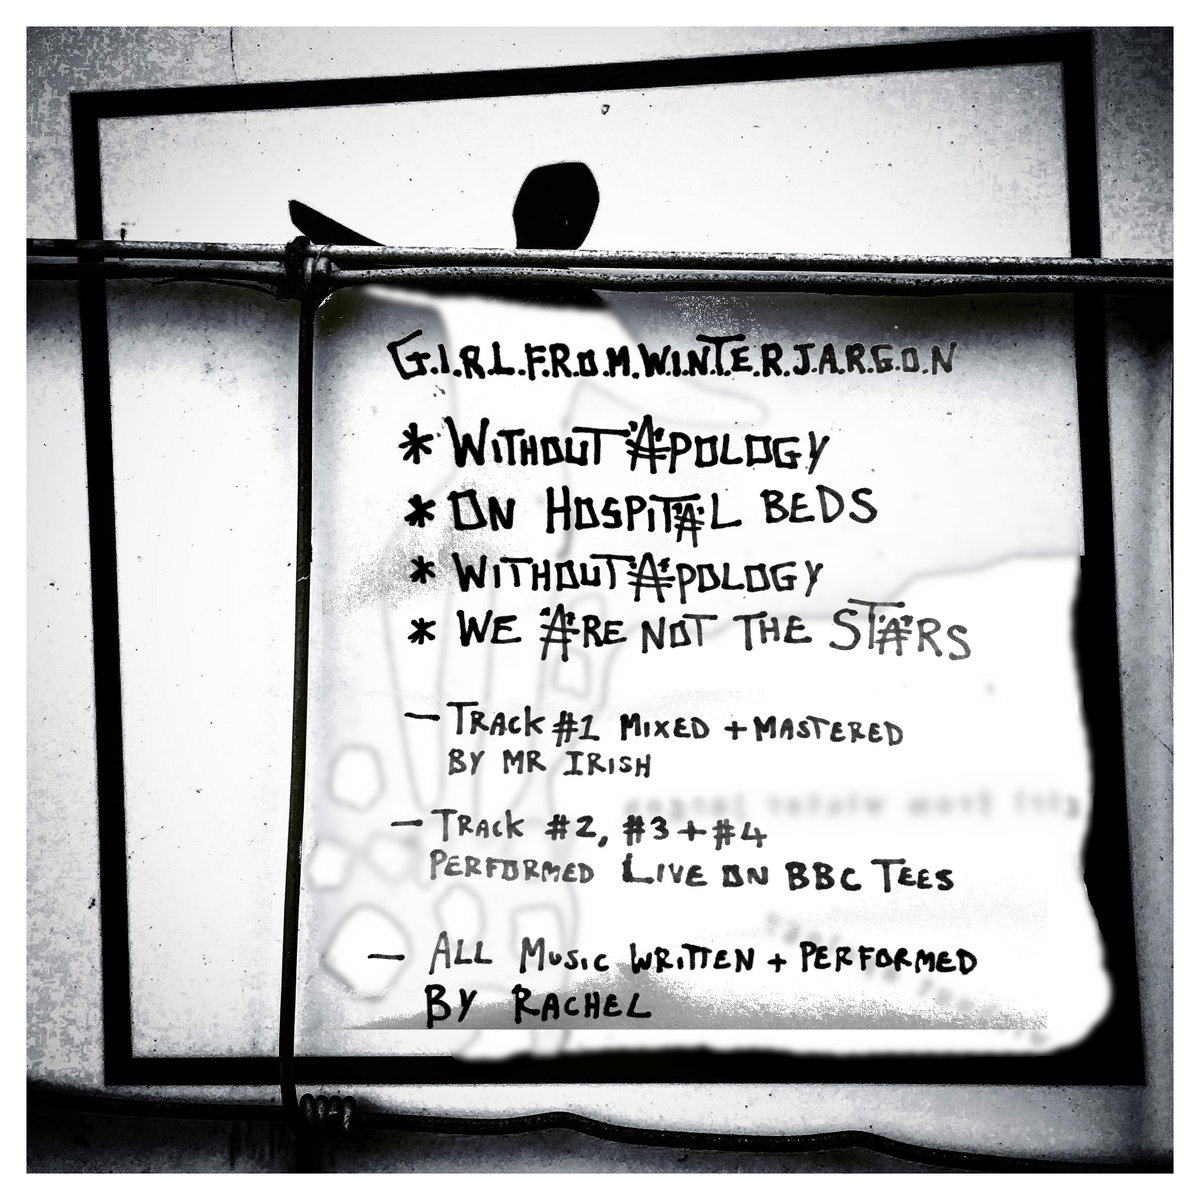 G.I.R.L.F.R.O.M.W.I.N.T.E.R.J.A.R.G.O.N
* WITHOUT APOLOGY
* ON HOSPITAL BEDS
* WITHOUT APOLOGY
* WE ARE NOT THE STARS
— TRACK #1 MIXED + MASTERED
BY MR IRISH
— TRACK #2, #3 + #4
PERFORMED LIVE ON BBC TEES
— ALL MUSIC WRITTEN + PERFORMED
BY RACHEL